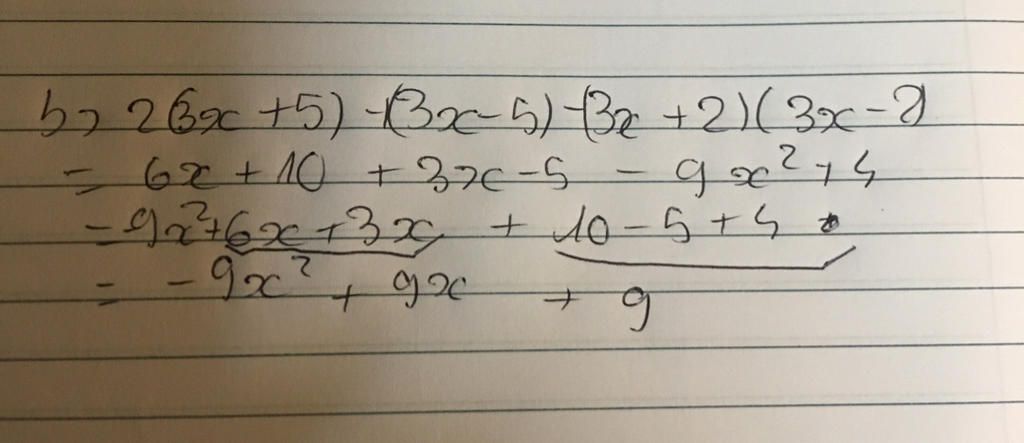 b) 2(3x+5)-(3x-5)-(3x+2)(3x-2)
= 6x+10 +3x-5 - 9x²+4
-9x²+6x+3x + 10-5+4
= -9x² + 9x + 9